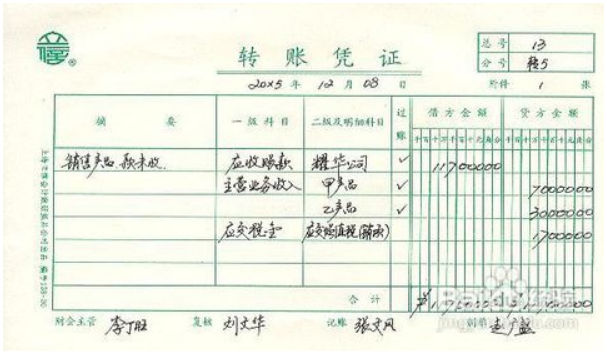 转账凭证
总号 13
分号 转5
20×5 年 12 月 08 日
附件 1 张
摘要 一级科目 二级及明细科目 过账 借方金额 贷方金额
千百十万千百十元角分 千百十万千百十元角分
销售产品,款未收 应收账款 耀华公司 ✓ 11700000
主营业务收入 甲产品 ✓ 7000000
乙产品 ✓ 3000000
应交税金 应交增值税(销项) 1700000
合计 ¥11700000
财会主管 李丁旺 复核 刘文华 记账 张文风 制单
Baidu经验